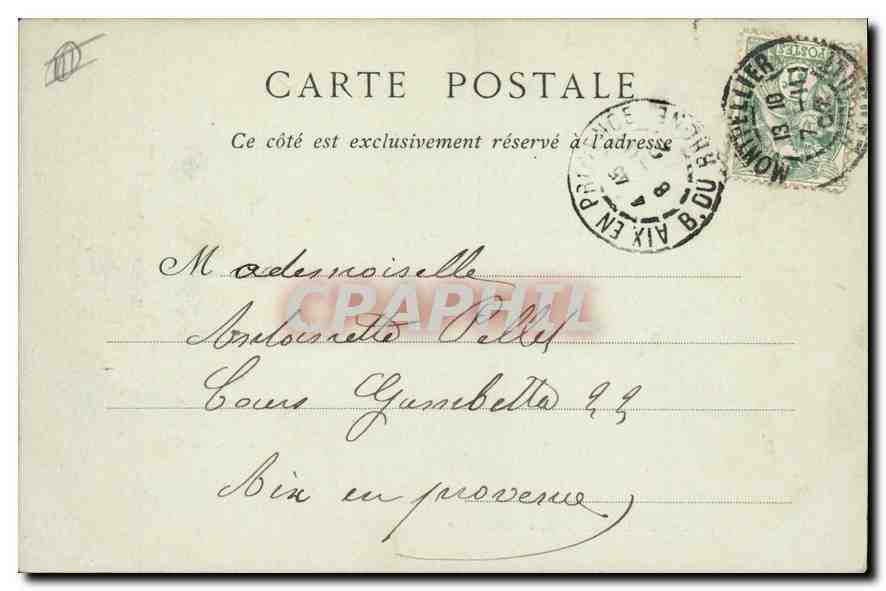 CARTE POSTALE
Ce côté est exclusivement réservé à l'adresse
POSTES
MONTPELLIER
13 10
7 -10
03
AIX EN PROVENCE B. DU RHONE
8
4 45
Mademoiselle
CPAPHIL
Antoinette Pellet
Cours Gambetta 22
Aix en provence